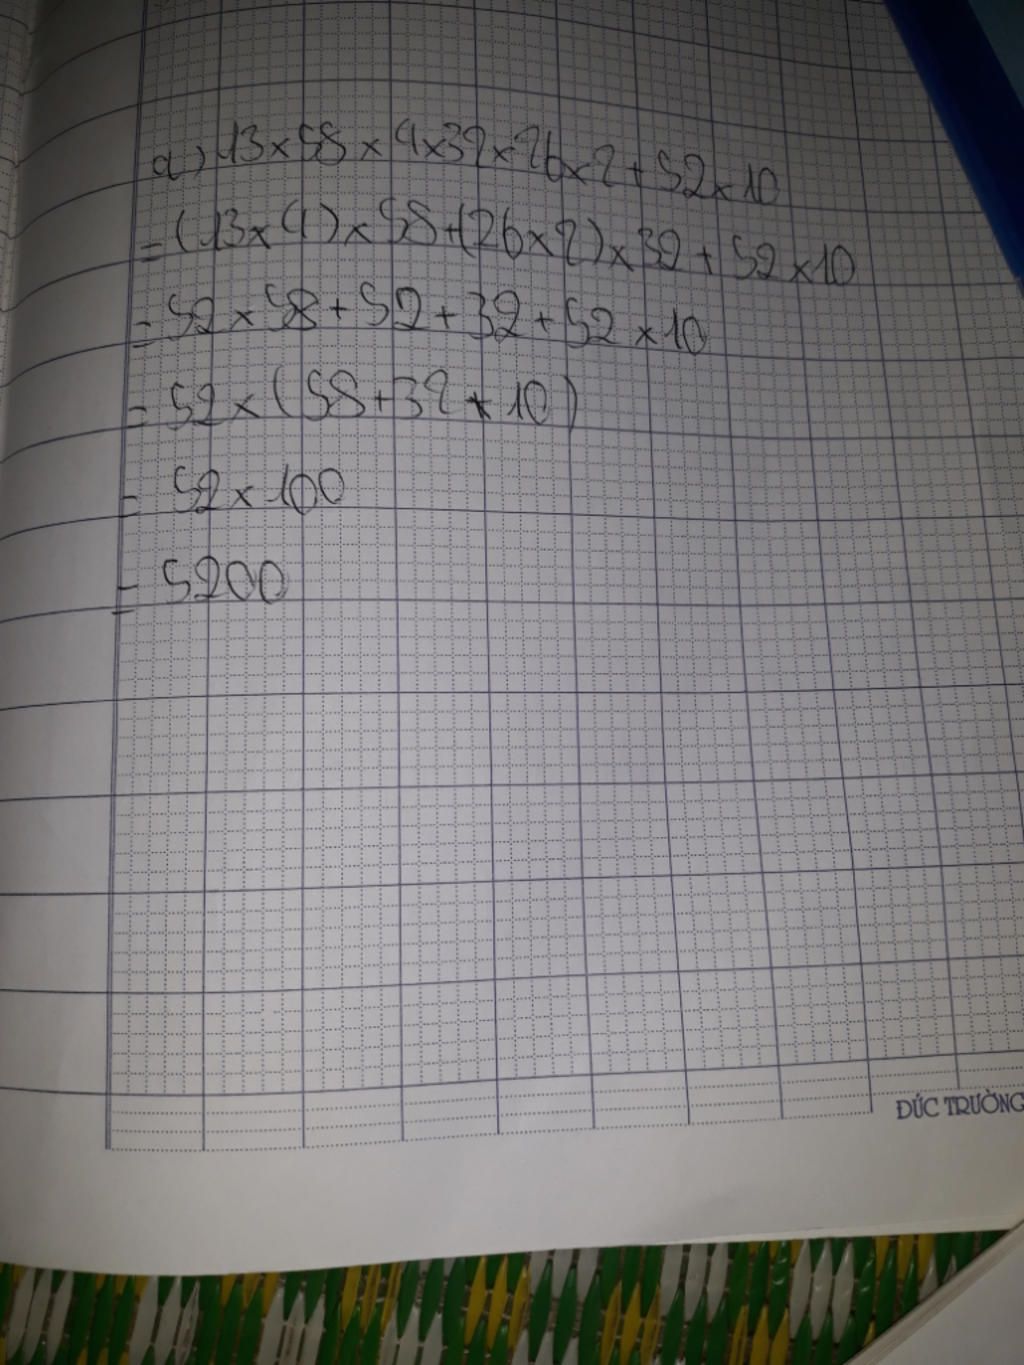 a) 13 x 58 x 4 x 32 x 26 x 2 + 52 x 10
= (13 x 4) x 58 + (26 x 2) x 32 + 52 x 10
= 52 x 58 + 52 + 32 + 52 x 10
= 52 x (58 + 32 + 10)
= 52 x 100
= 5200
ĐỨC TRƯỜNG